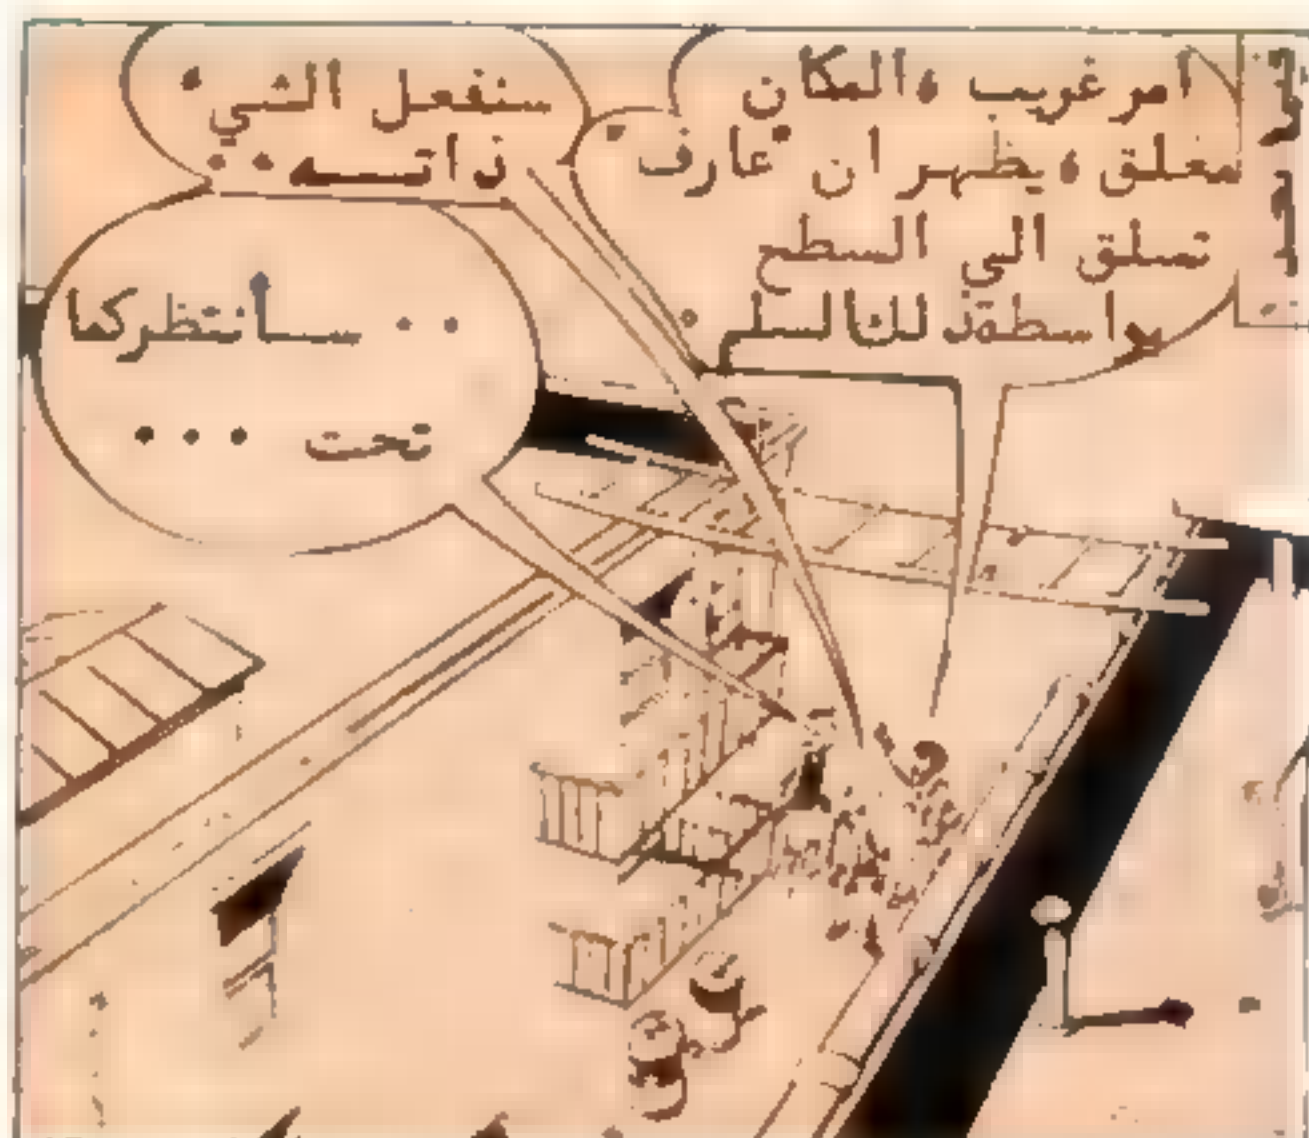 امر غريب ، المكان
مغلق ، يظهر ان "عارف"
تسلق الى السطح
بواسطة ذلك السلم .
سنفعل الشي ،
ذاتـــه . .
. . ســأنتظركما
تحت . . .